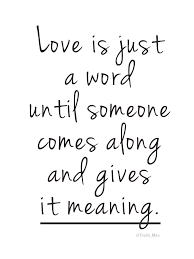 Love is just
a word
until someone
comes along
and gives
it meaning.